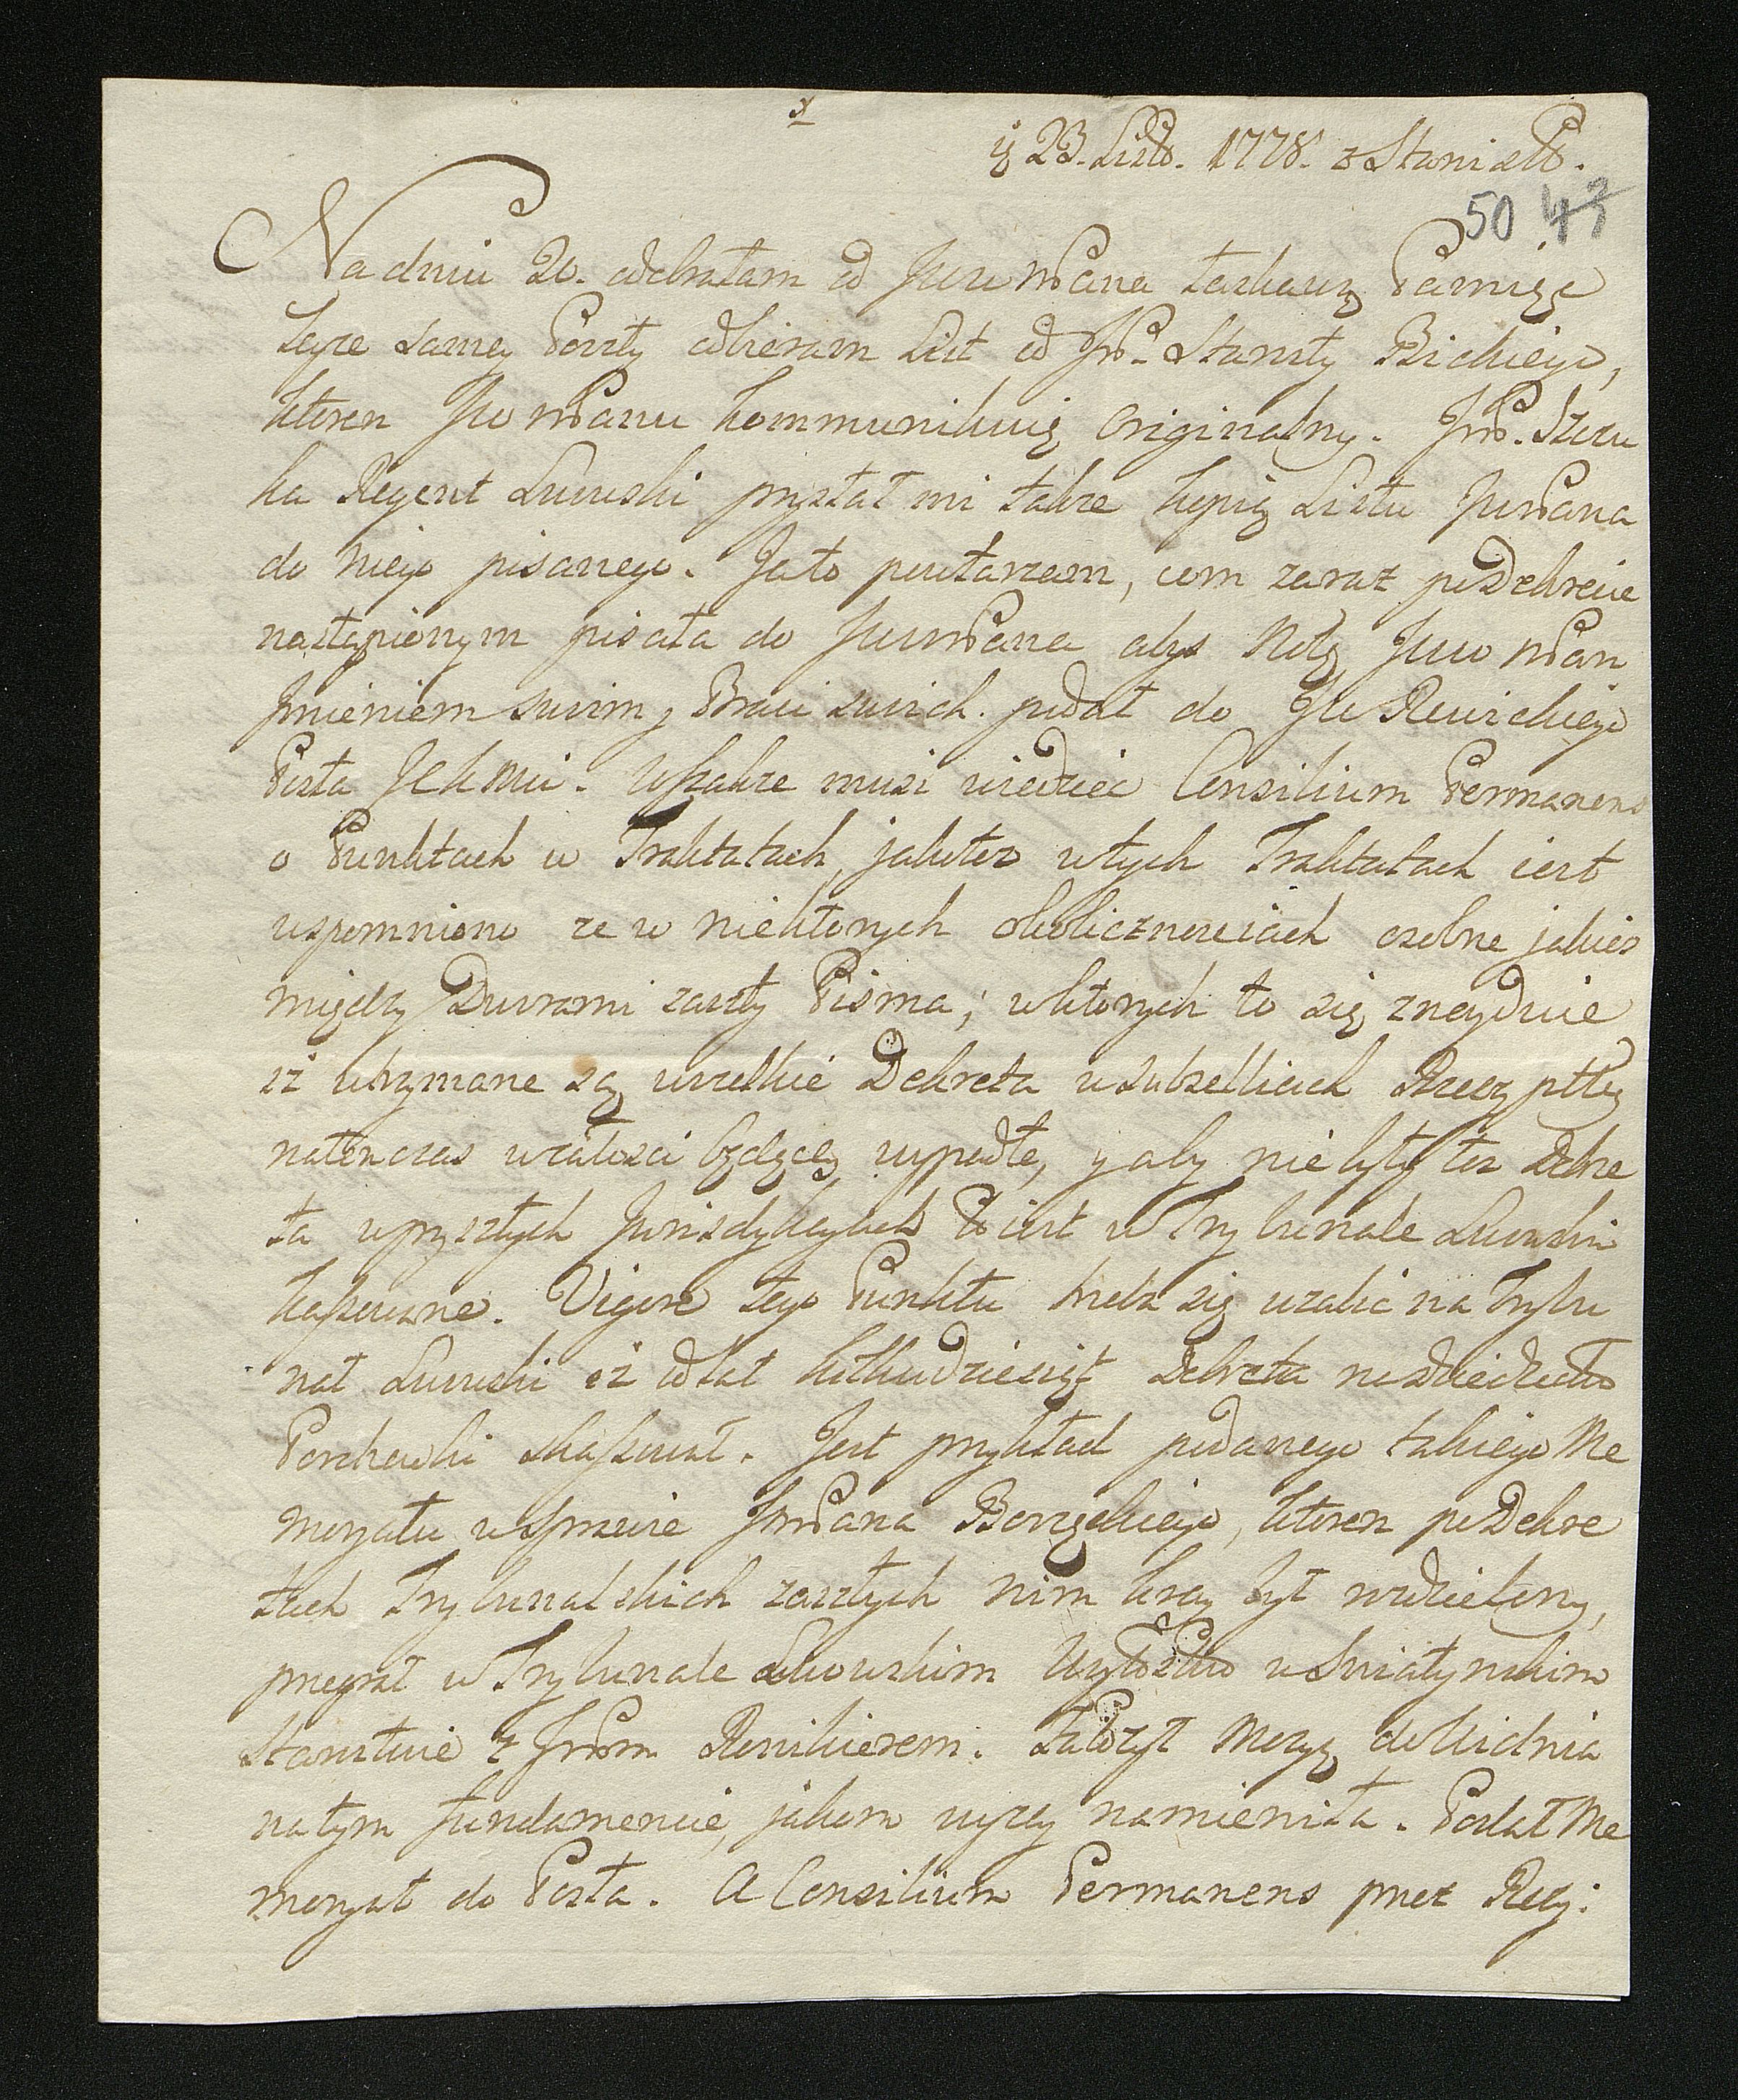 23. List. 1778. z Stanisł.
50 47
Na dniu 20. odebrałam od Jww Pana łaskawą Pamięc
teyze samey Poczty odbieram List od JwP. Starosty Bickiego,
ktoren Jww Panu kommunikuię originalny. JwP. Szczu
ka Regent Lwowski przysłał mi także kopię Listu JwwPana
do niego pisanego. Ja to powtarzam, com zaraz po Dekrecie
nastąpionym pisała do JwwPana abys Notę Jww Pan
Jmieniem swoim y Braci swoich podał do JW Rewickiego
Posła JCKMci. Wszakze musi wiedziec Consilium Permanens
o Punktach w Traktatach, jakotez w tych Traktatach iest
wspomniono ze w niektorych okolicznosciach osobne jakies
między Dworami zaszły Pisma; w ktorych to się znayduie
iż utrzymane są wszelkie Dekreta w subselliach Rzeczypttey
natenczas w całosci będącey wypadłe, y aby nie były tez Dekre
ta w przyszłych Jurisdykcyach to iest w Trybunale Lwowskim
kassowane. Vigore tego Punktu trzeba się uzalic na Trybu
nał Lwowski iż od lat kilkudziesiąt Dekreta na Dziedzictwo
skassował. Jest przykład podanego takiego Me
moryału w sprawie JwPana Borzęckiego, ktoren po Dekre
tach Trybunalskich zaszłych nim kray był rozdzielony,
przegrał w Trybunale Lwowskim w Sniatynskim
Starostwie z JwPm. Założył do Widnia
na tym fundamencie, jakom wyzey namieniła. Podał Me
moryał do Posła. A Consilium Permanens przez Rezy: